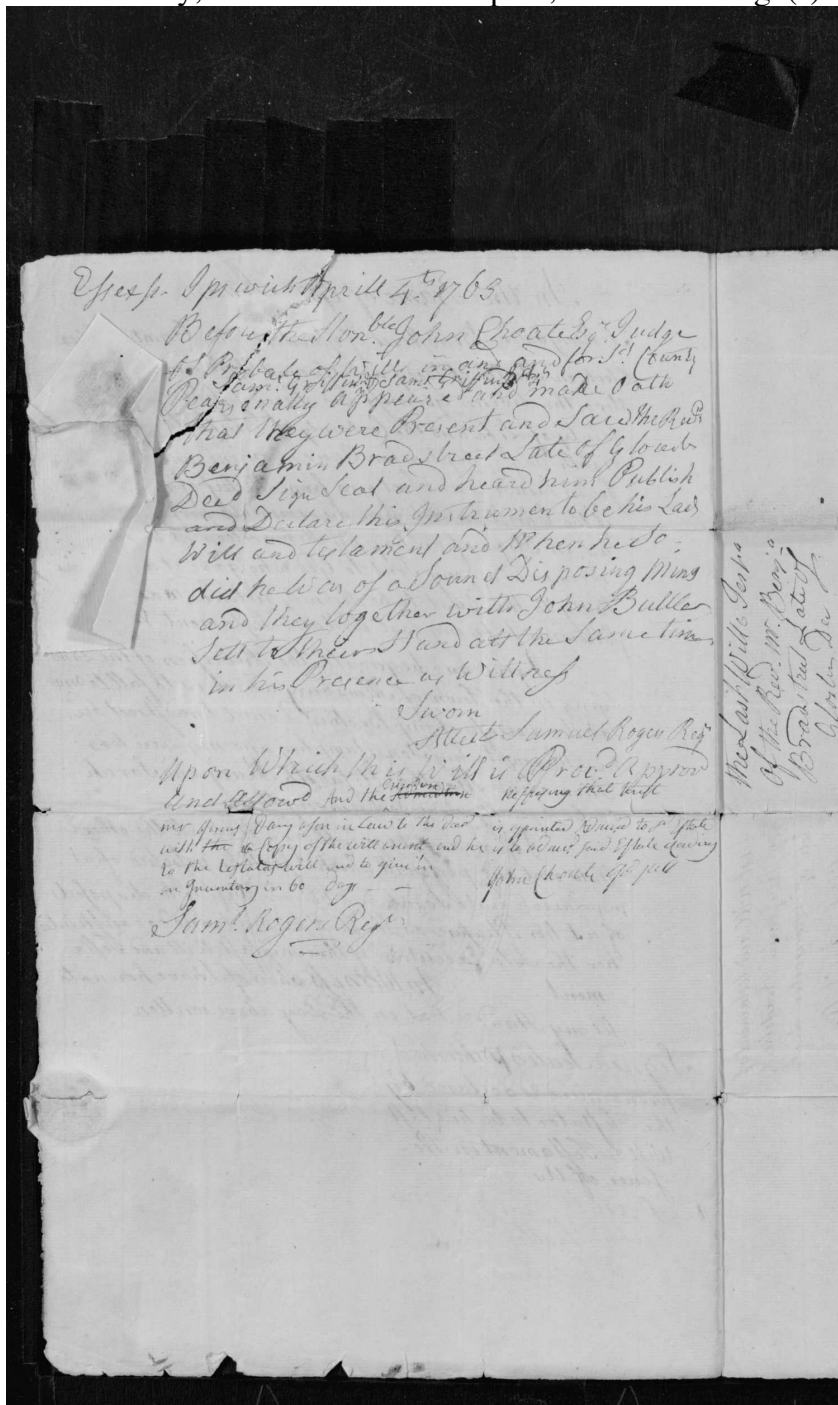 Essex ss. Ipswich Aprill 4th 1763
Before the Honble John Choate Esqr Judge
of Probate of wills in and for sd County
Saml Griffin & Saml Griffin
Pearsonally appeared and made Oath
that they were Present and Saw the Revd
Benjamin Bradstreet Late of Glocester
Decd Sign Seal and heard him Publish
and Declare this Instrument to be his Last
Will and testament and When he So
did he was of a Sound Disposing Mind
and they together with John Butler
Sett to their Hand att the Same time
in his Presence as Wittness
Sworn
Attest Samuel Rogers Regr
Upon Which this Will is Provd Approvd
and allowd and the Refusing that trust
mr a son in Law to the decd is appointed Admr to sd Estate
with the a Copy of the will annext and he is to admr said Estate according
to the testators will and to give in
an Inventory in 60 days
John Choate
Saml Rogers Regr
the Last Will & Test
of the Revd Mr Benja
Bradstreet Late of